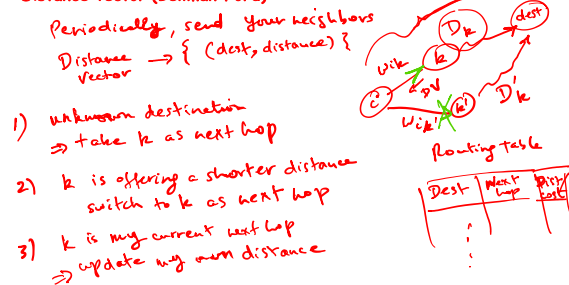 Distance vector (Bellman Ford)
Periodically, send your neighbors
Distance vector → { (dest, distance) }
1) unknown destination
⇒ take k as next hop
2) k is offering a shorter distance
switch to k as next hop
3) k is my current next hop
⇒ update my own distance
dest
D_k
k
w_ik
DV
i
k'
D'_k
w_ik'
Routing table
Dest
Next hop
Dist/cost